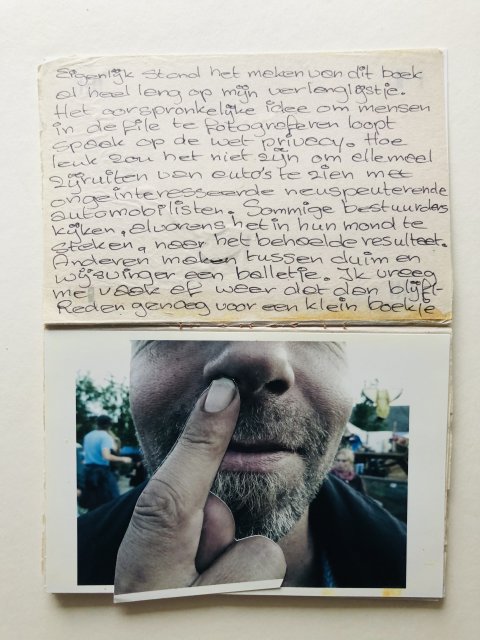 Eigenlijk stond het maken van dit boek
al heel lang op mijn verlanglijstje.
Het oorspronkelijke idee om mensen
in de file te fotograferen loopt
spaak op de wet privacy. Hoe
leuk zou het niet zijn om allemaal
zijruiten van auto's te zien met
ongeinteresseerde neuspeuterende
automobilisten. Sommige bestuurders
kijken, alvorens het in hun mond te
steken, naar het behaalde resultaat.
Anderen maken tussen duim en
wijsvinger een balletje. Ik vraag
me vaak af waar dat dan blijft.
Reden genoeg voor een klein boekje